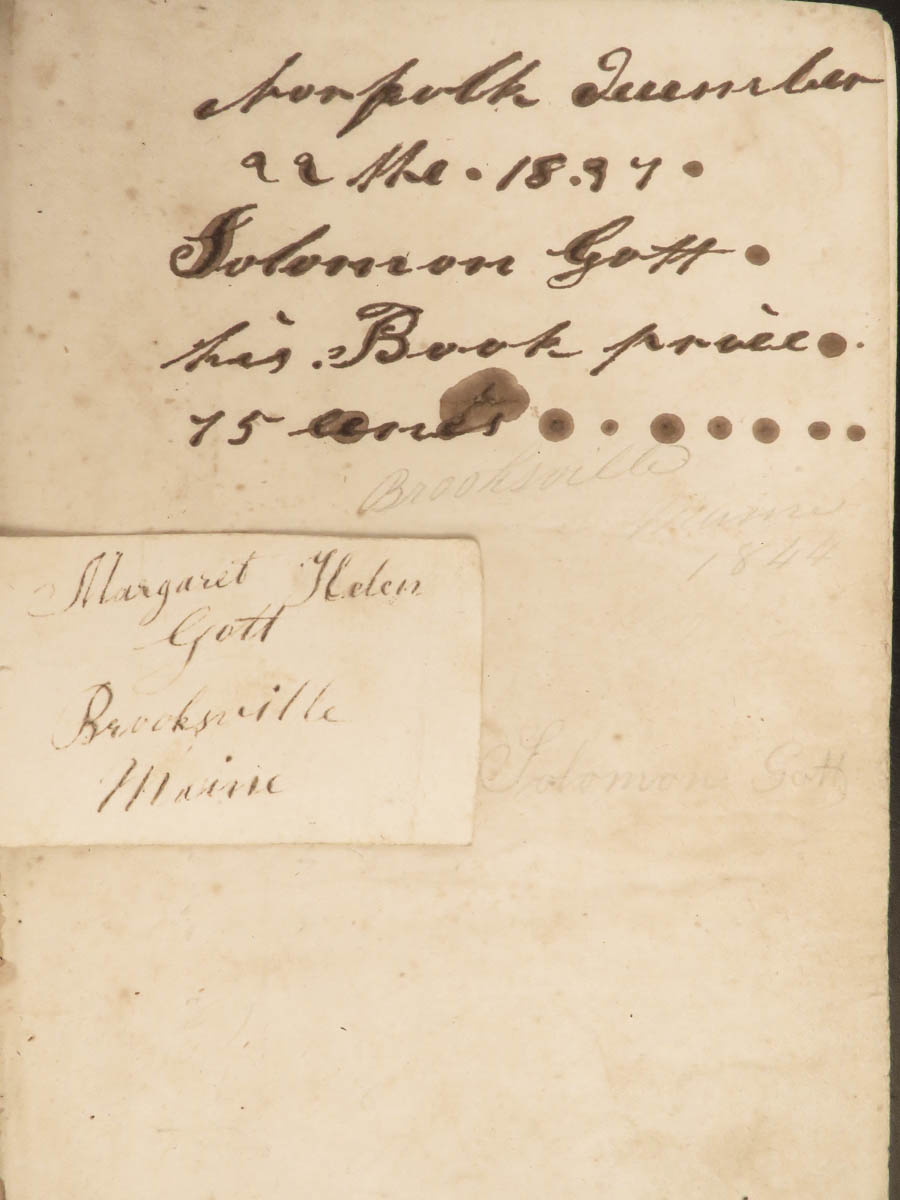 Norfolk December
22 the . 18.27 .
Solomon Gott .
his . Book price .
75 cents . . . . . . .
Brooksville
Maine
1844
Margaret Helen
Gott
Brooksville
Maine
Solomon Gott